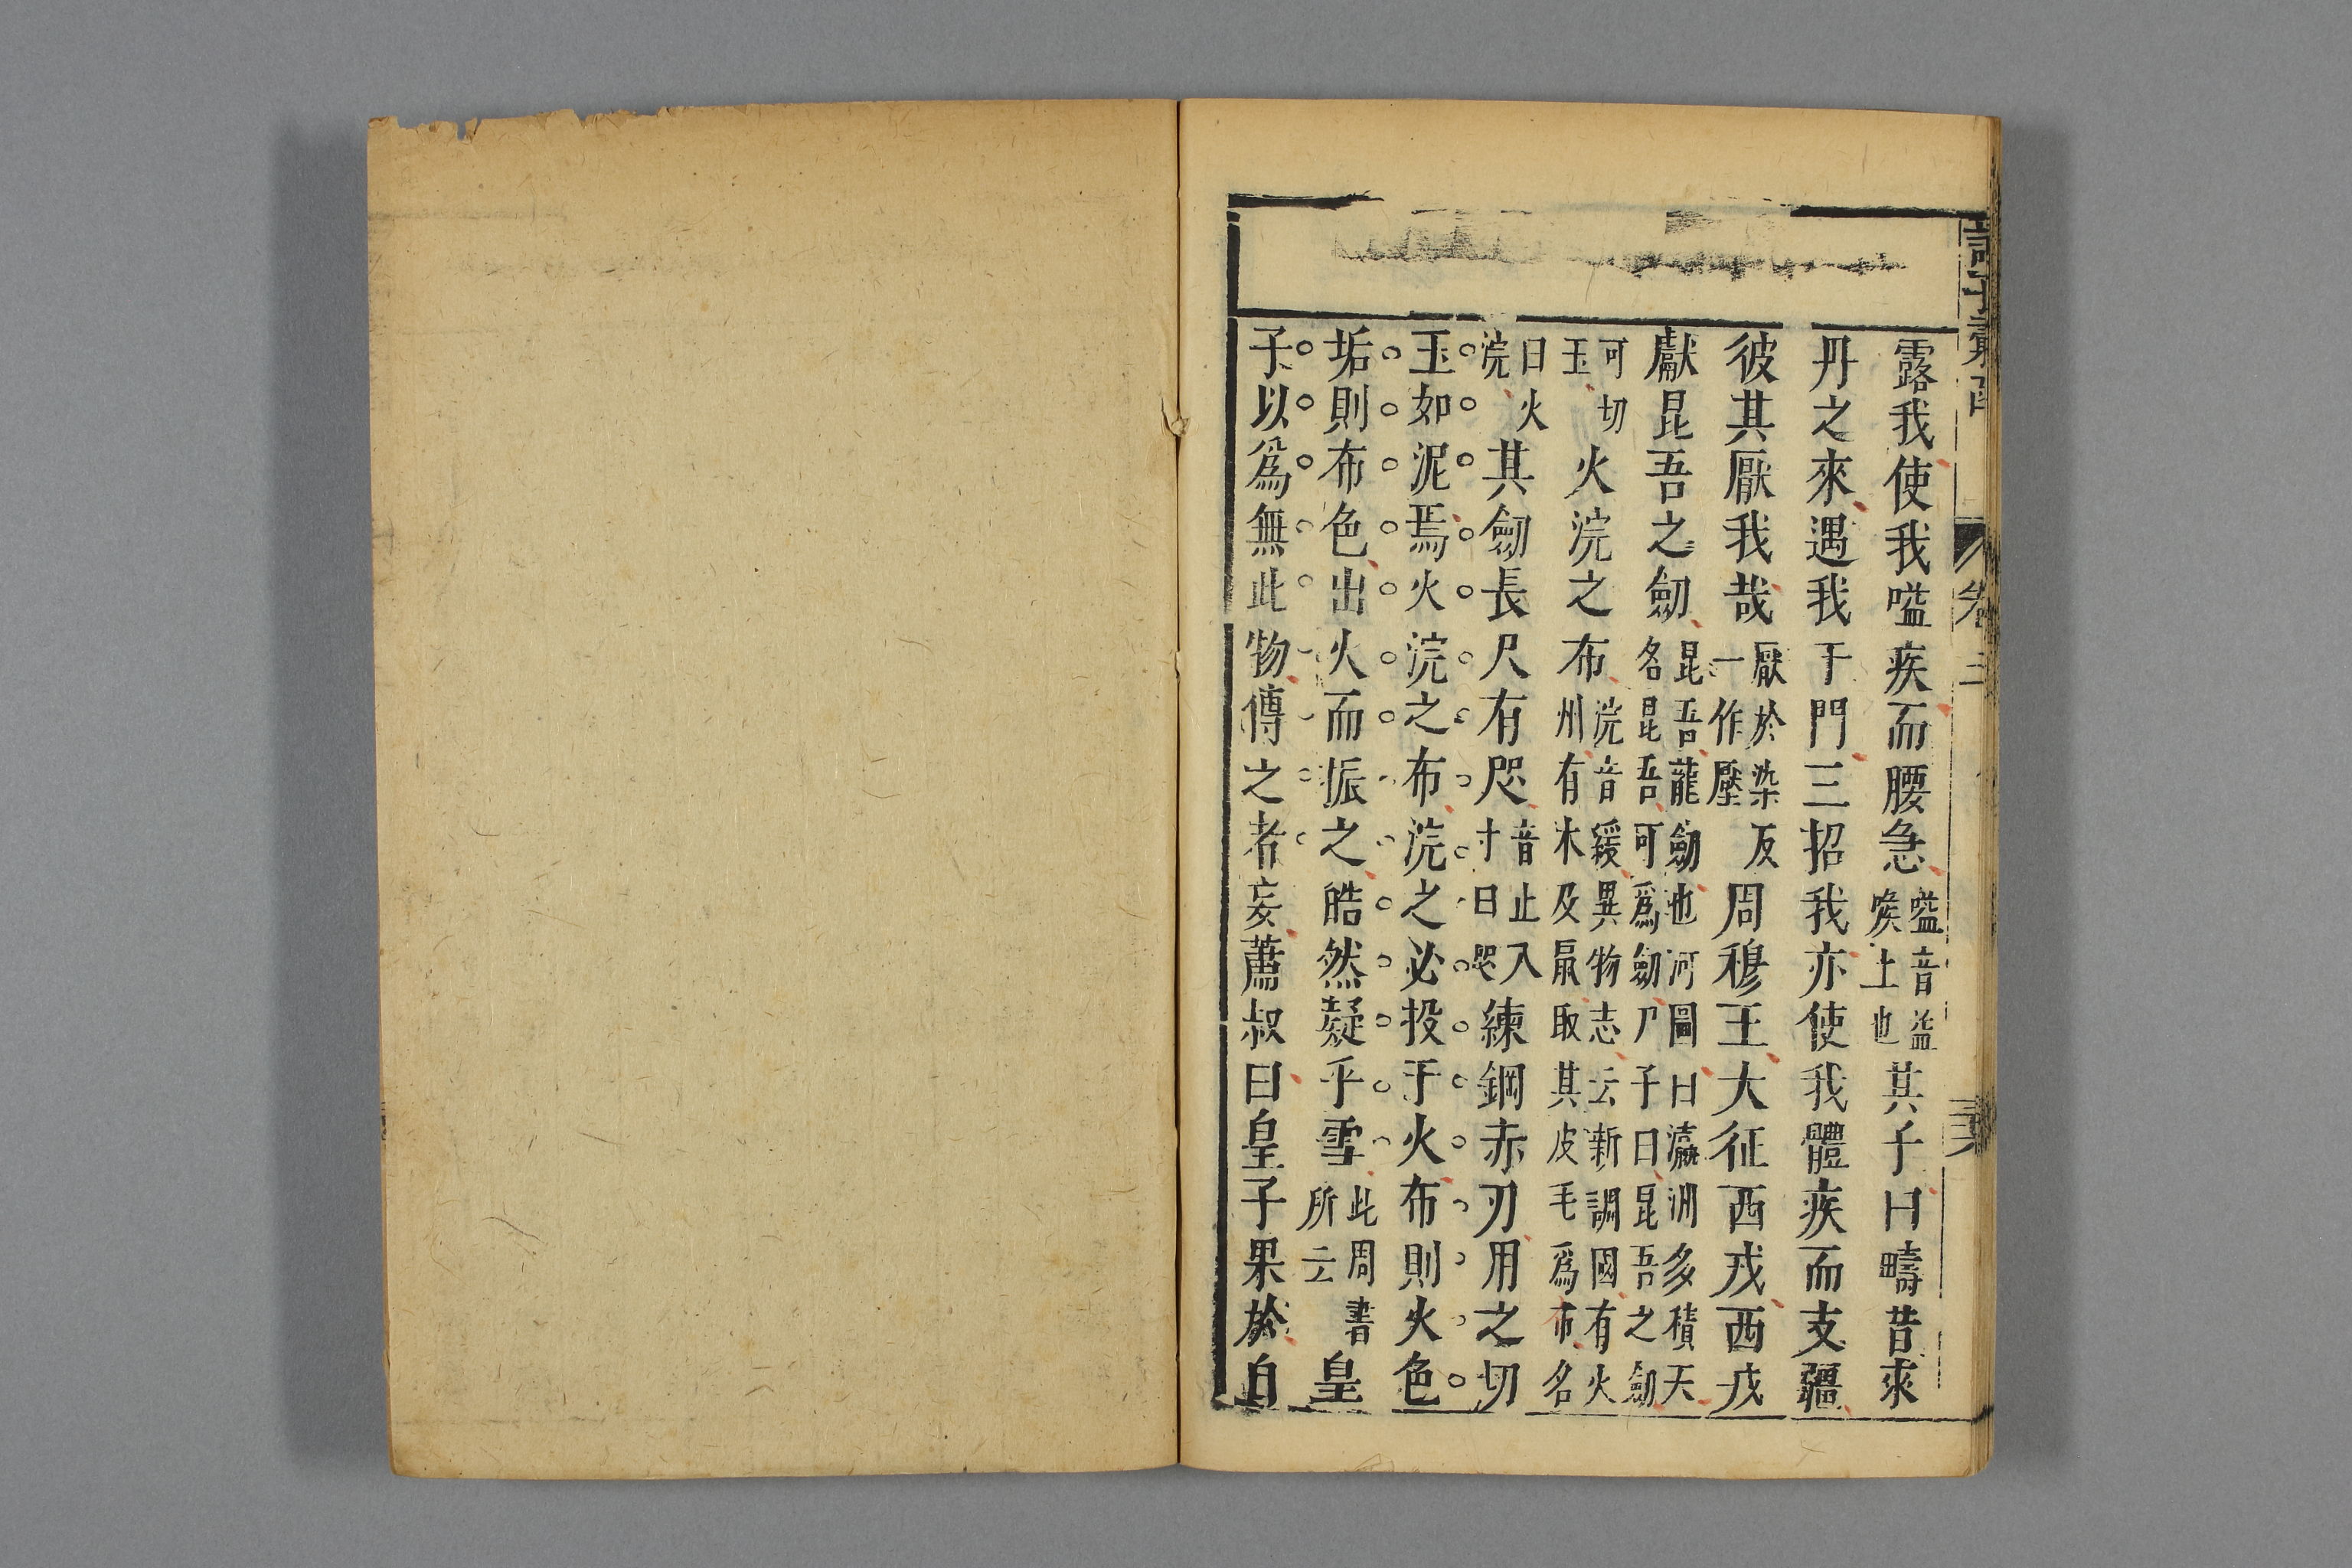 露我使我嗌疾而腰急嗌音益喉上也其子曰疇昔來
丹之來遇我于門三招我亦使我體疾而支彊
彼其厭我哉厭於染反一作壓周穆王大征西戎西戎
獻昆吾之劒昆吾龍劒也河圖曰瀛洲多積天名昆吾可爲劒尸子曰昆吾之劒
可切玉火浣之布浣音緩異物志云新調國有火州有木及鼠取其皮毛爲布名
曰火浣其劒長尺有咫音止八寸曰咫練鋼赤刃用之切
玉如泥焉火浣之布浣之必投于火布則火色
垢則布色出火而振之皓然疑乎雪此周書所云皇
子以爲無此物傳之者妄蕭叔曰皇子果於自
卷三